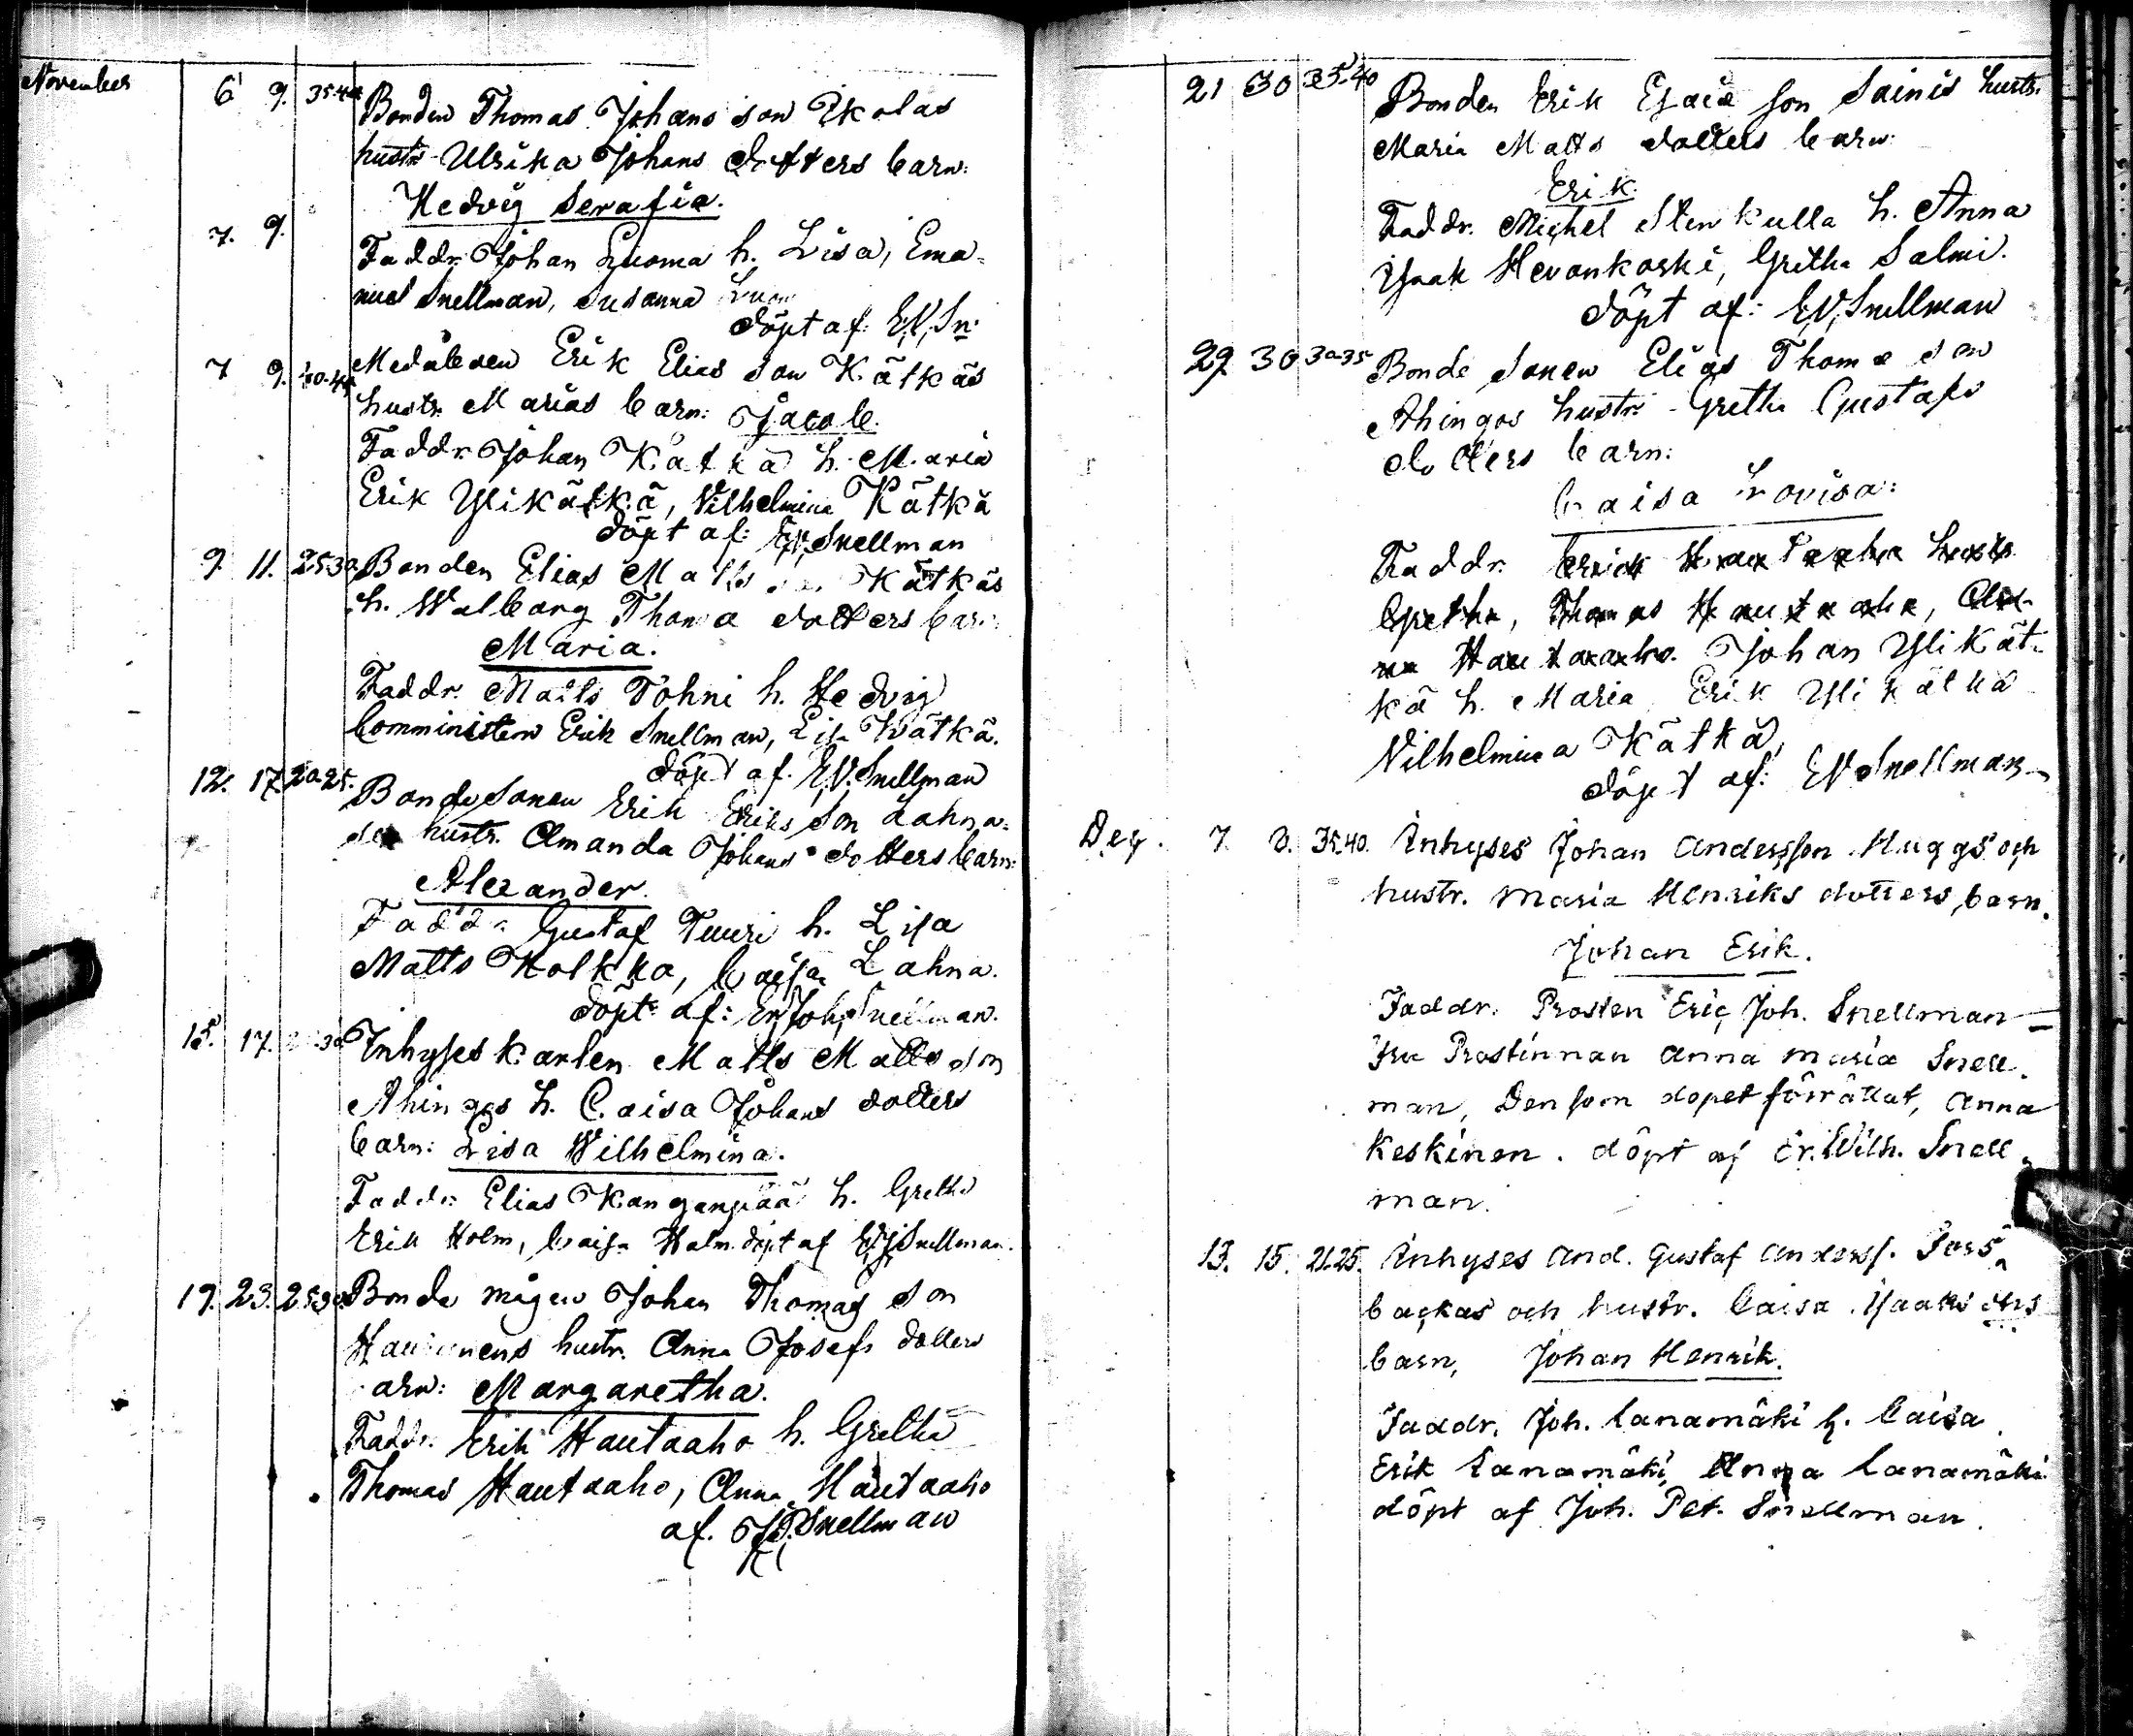 November 6 9. 35.40 Bonden Thomas Johans son Pkolas
hustr. Ulrika Johans dotters barn:
Hedvig Serafia.
7. 9.
Faddr. Johan Luoma h. Lisa, Ema=
nuel Snellman, Susanna Luom
döpt af: E.V. Sn.
7 9. 40.45 Medåboen Erik Elias son Kätkäs
hustr. Marias barn: Jacob.
Faddr. Johan Kätkä h. Maria
Erik Ylikätkä, Vilhelmina Kätkä
döpt af: E.V. Snellman
9. 11. 25.30 Bonden Elias Matts Kätkäs
h. Walborg Thoma dotters bar
Maria.
Faddr. Matts Tohni h. Hedvig
Comministern Erik Snellman, Lisa Kätkä.
döpt af. E.V. Snellman
12. 17. 20.25. Bondesonen Erik Eriks son Lahna=
hustr. Amanda Johans dotters barn:
Alexander.
Faddr Gustaf Tuuri h. Lisa
Matts Kolkka, Caisa Lahna.
döpt af: Er. Joh. Snellman.
15. 17. 30 Inhyses karlen Matts Matts son
Ahingos h. Caisa Johans dotters
barn: Lisa Wilhelmina.
Faddr. Elias Kanganpää h. Gretha
Erik Holm, Caisa Holm. döpt af E.J. Snellman.
19. 23. 25.30 Bonde mågen Johan Thomas son
Hautanens hustr. Anna Josefs dotters
arn: Margaretha.
Faddr. Erik Hautaaho h. Gretha
Thomas Hautaaho, Anna Hautaaho
af. J.P. Snellman
21 30 35.40 Bonden Erik Esaia son Sainis hustr.
Maria Matts dotters barn:
Erik.
Faddr. Michel Stenkulla h. Anna
Isaak Hevonkoski, Gretha Salmi.
döpt af: E.V. Snellman
29. 30 30.35 Bonde sonen Elias Thomæ son
Ahingos hustr. Gretha Gustafs
dotters barn:
Caisa Lovisa:
Faddr. Erick Hautaaho hustr
Gretha, Thomas Hautaaho, An-
na Hautaaho. Johan Ylikät=
kä h. Maria Erik Ylikätkä
Vilhelmina Kätkä,
döpt af: E.V. Snellman
Dec. 7. 8. 35.40. Inhyses Johan Andersson Huggs och
hustr. Maria Henriks dotters, barn.
Johan Erik.
Faddr. Prosten Eric Joh. Snellman
Fru Prostinnan Anna Maria Snell.
man, Den som dopet förrättat, Anna
Keskinen. döpt af Er. Wilh. Snell
man.
13. 15. 21.25. Inhyses And. Gustaf Anderss. Fors
backas och hustr. Caisa Isaaks drs
barn, Johan Henrik.
Faddr. Joh. Lanamäki h. Caisa.
Erik Lanamäki, Anna Lanamäki
döpt af Joh. Pet. Snellman.